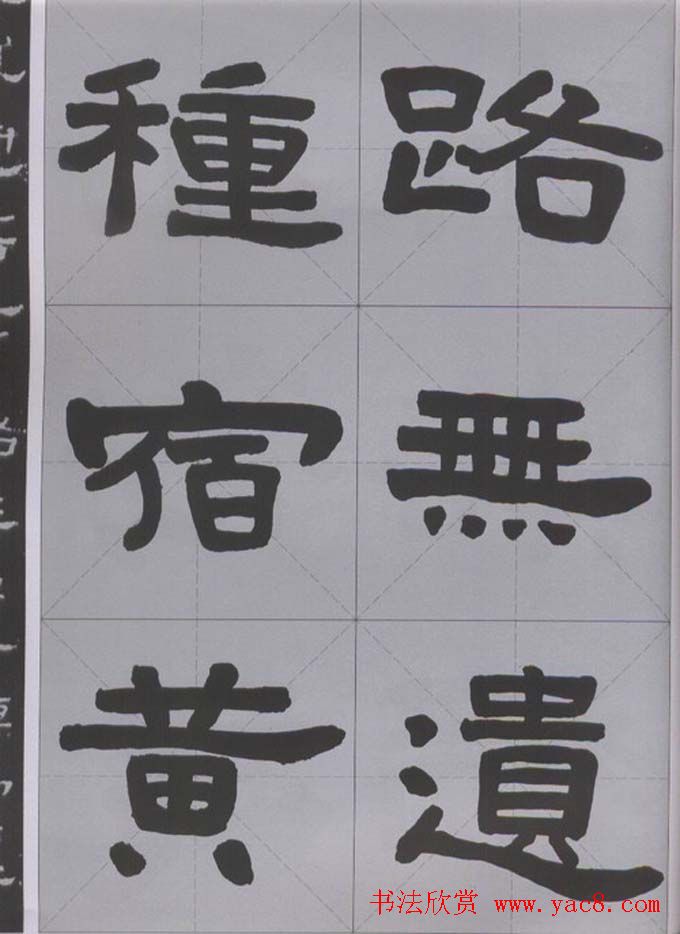 路無遺
種宿黄
书法欣赏 www.yac8.com